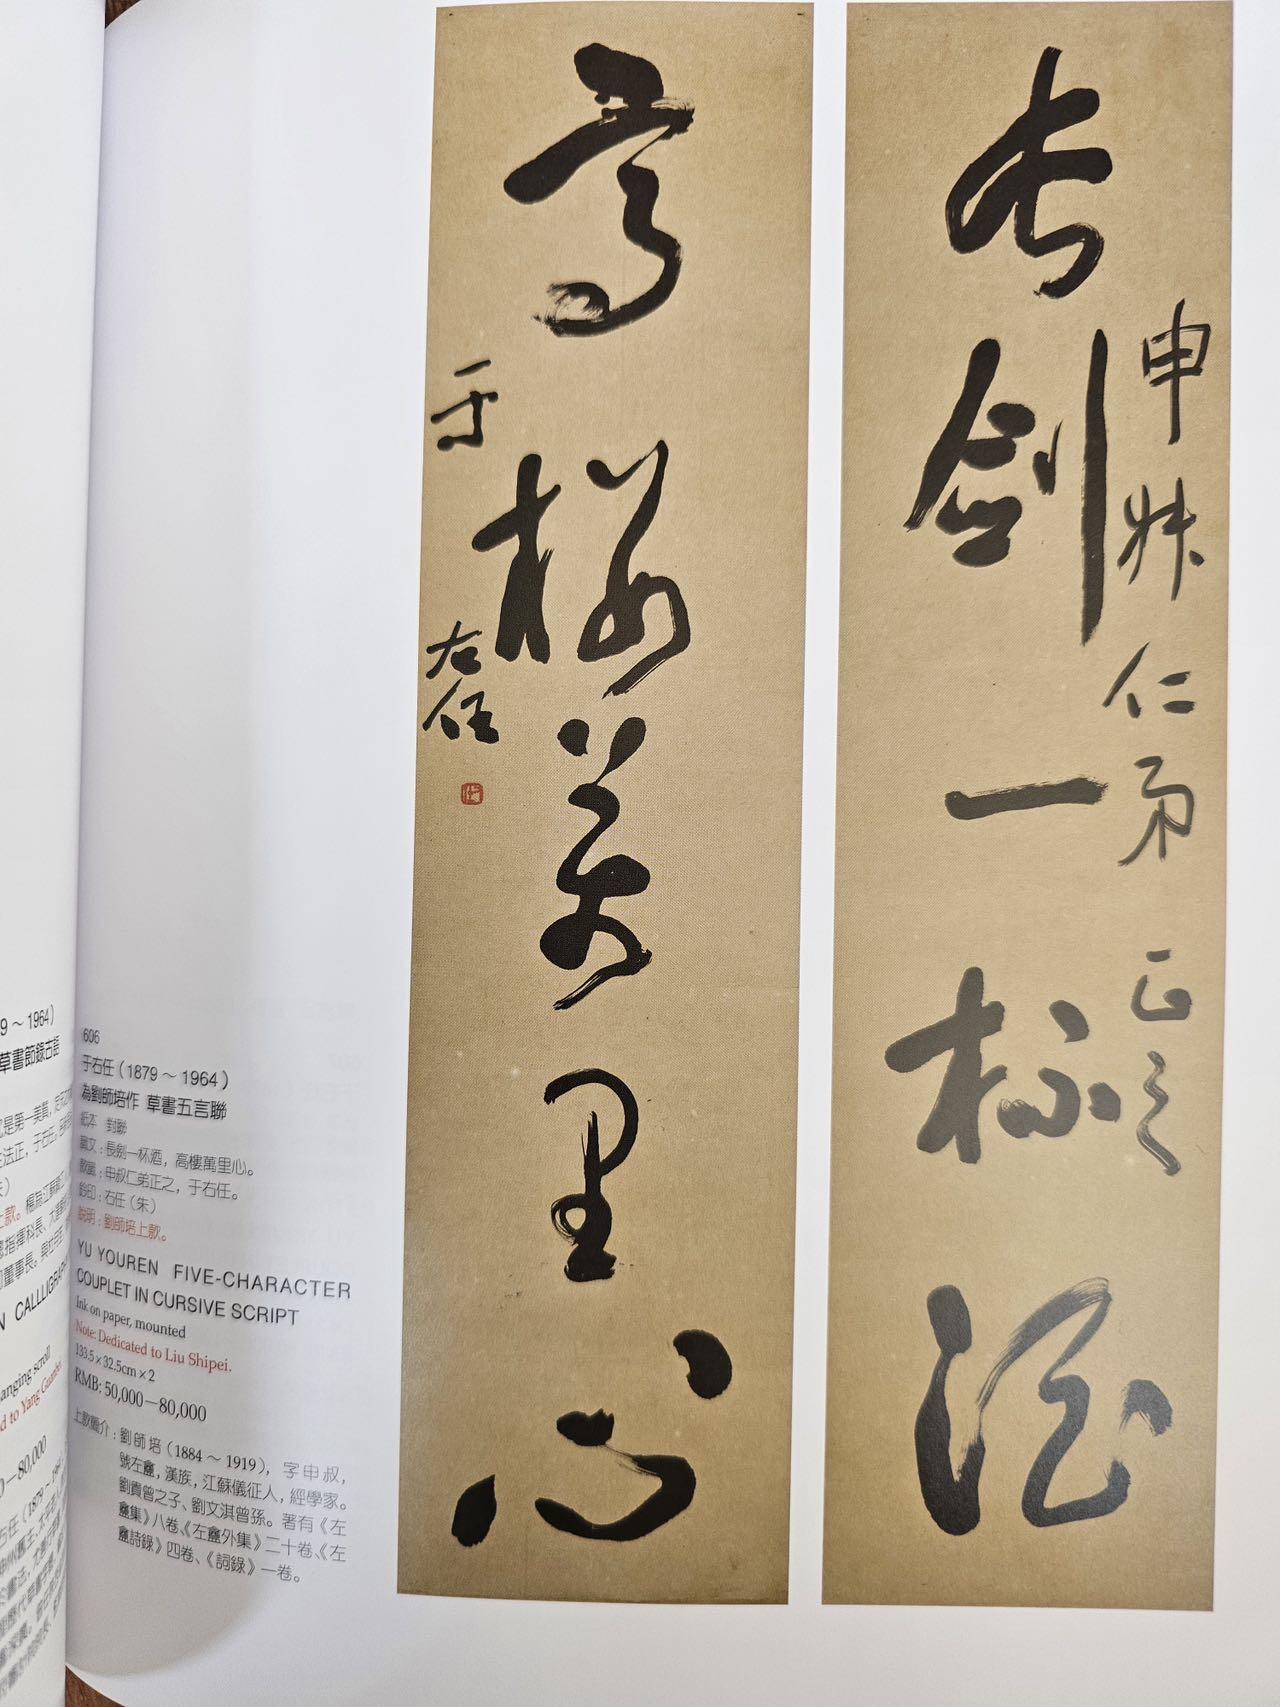 長劍一杯酒
申叔仁弟正之
高樓萬里心
于右任
606
于右任（1879～1964）
為劉師培作 草書五言聯
紙本 對聯
釋文：長劍一杯酒，高樓萬里心。
款識：申叔仁弟正之，于右任。
鈐印：右任（朱）
說明：劉師培上款。
YU YOUREN FIVE-CHARACTER
COUPLET IN CURSIVE SCRIPT
Ink on paper, mounted
Note: Dedicated to Liu Shipei.
133.5×32.5cm×2
RMB: 50,000—80,000
上款簡介：劉師培（1884～1919），字申叔，
號左盦，漢族，江蘇儀征人，經學家。
劉貴曾之子、劉文淇曾孫。著有《左
盦集》八卷、《左盦外集》二十卷、《左
盦詩錄》四卷、《詞錄》一卷。
9～1964）
草書節錄古語
anging scroll
0—80,000